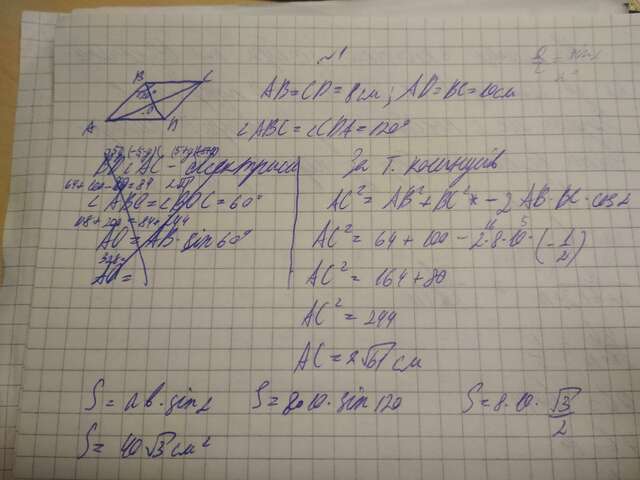 №1
B C
A D
O
AB=CD=8см; AD=BC=10см
∠ABC=∠CDA=120°
BD ∠ AC - бісектриси
64+100-80=84
∠ABO=∠BOC=60°
AO=AB·sin60°
AO=
За т. косинусів
AC²=AB²+BC²-2AB·BC·cosα
AC²=64+100-2·8·10·(-1/2)
AC²=164+80
AC²=244
AC=2√61 см
S=ab·sinα S=8·10·sin120 S=8·10·√3/2
S=40√3 см²